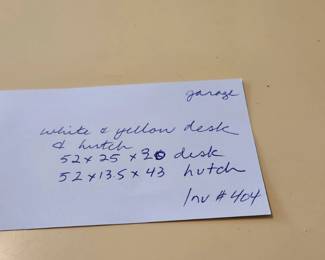 garage
white & yellow desk
& hutch
52 x 25 x 30 desk
52 x 13.5 x 43 hutch
Inv # 404